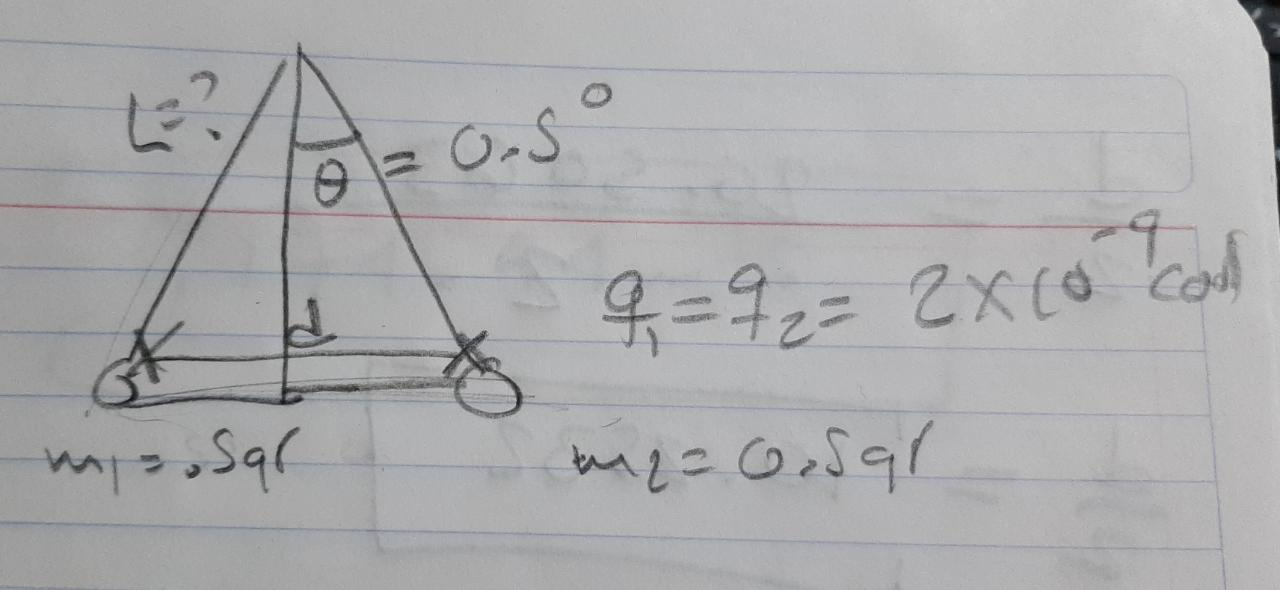 L=?
θ = 0.5°
d
q₁ = q₂ = 2×10⁻⁹
m₁ = .5gr
m₂ = 0.5gr